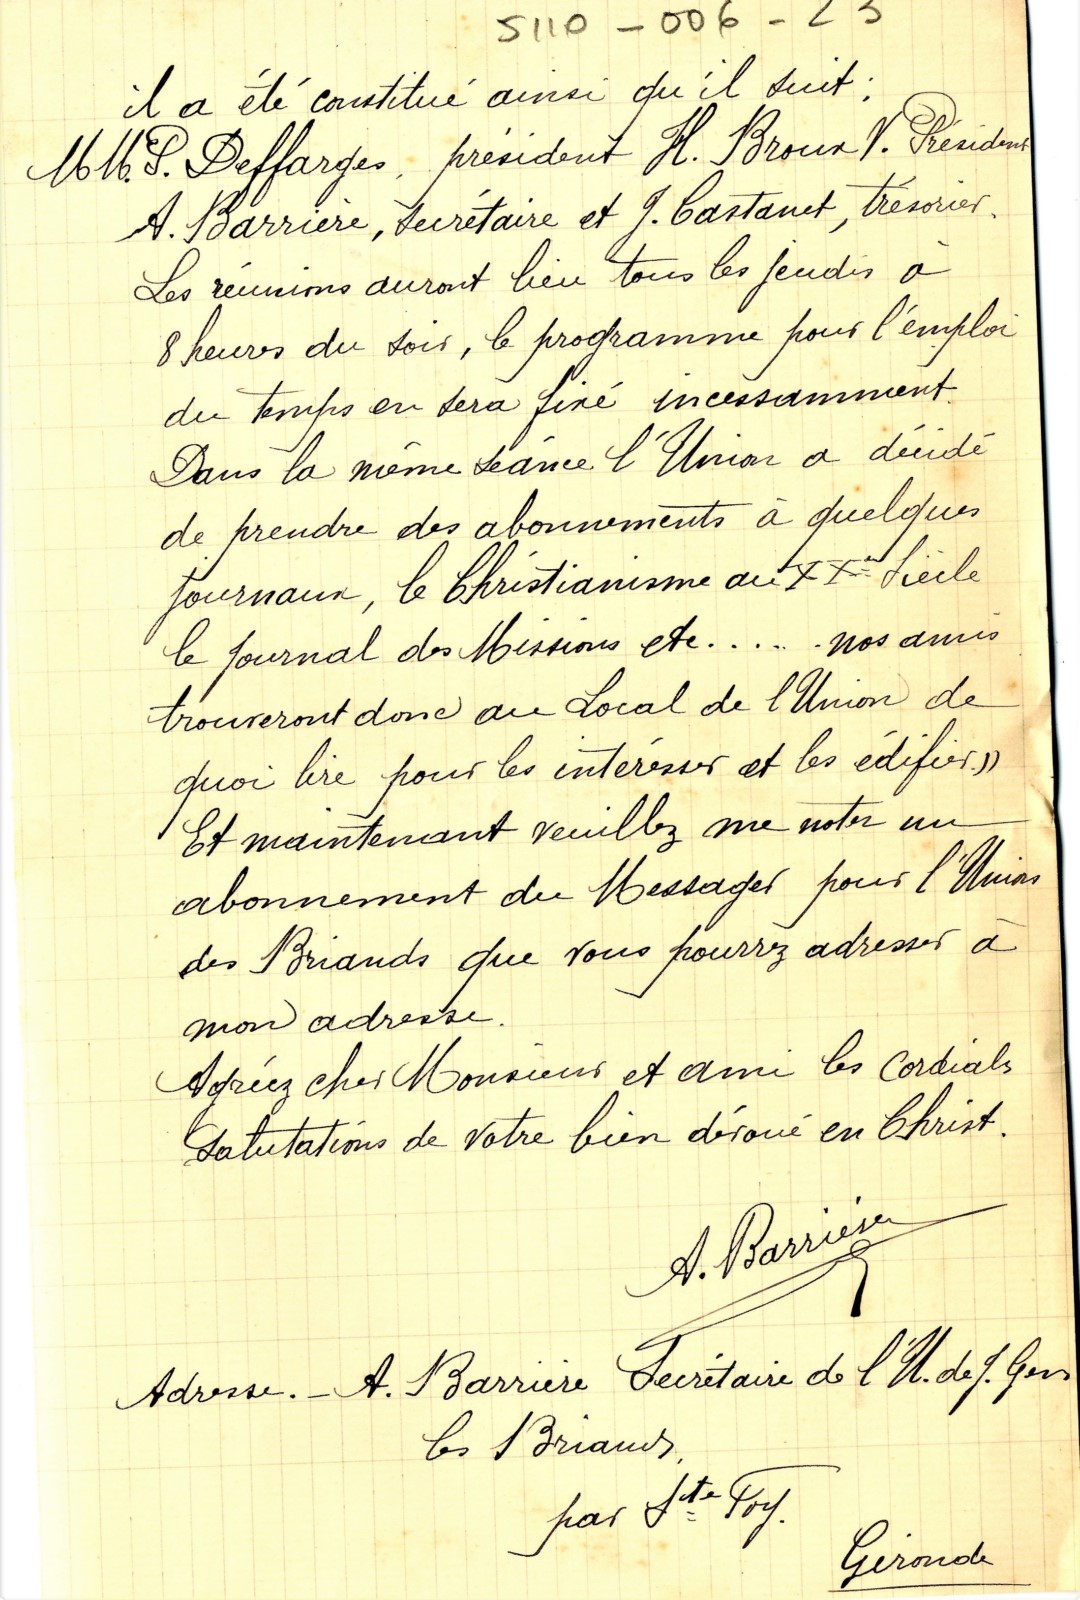 5110 - 006 - 23
il a été constitué ainsi qu'il suit :
MM. P. Deffarges, président H. Broux V. Président
A. Barrière, Secrétaire et J. Castanet, trésorier.
Les réunions auront lieu tous les jeudis à
8 heures du soir, le programme pour l'emploi
du temps en sera fixé incessamment.
Dans la même séance l'Union a décidé
de prendre des abonnements à quelques
journaux, le Christianisme au XXe Siècle
le journal des Missions etc..... nos amis
trouveront donc au Local de l'Union de
quoi lire pour les intéresser et les édifier.»
Et maintenant veuillez me noter un
abonnement du Messager pour l'Union
des Briands que vous pourrez adresser à
mon adresse.
Agréez cher Monsieur et ami les cordials
Salutations de votre bien dévoué en Christ.
A. Barrière
Adresse. - A. Barrière Secrétaire de l'U. de J. Gens
les Briands,
par Ste Foy.
Gironde